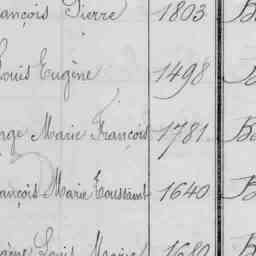 ançois Pierre 1803 B
Louis Eugène 1498 B
ange Marie François 1781 Ba
ançois Marie Toussaint 1640 B
Louis 1680 B